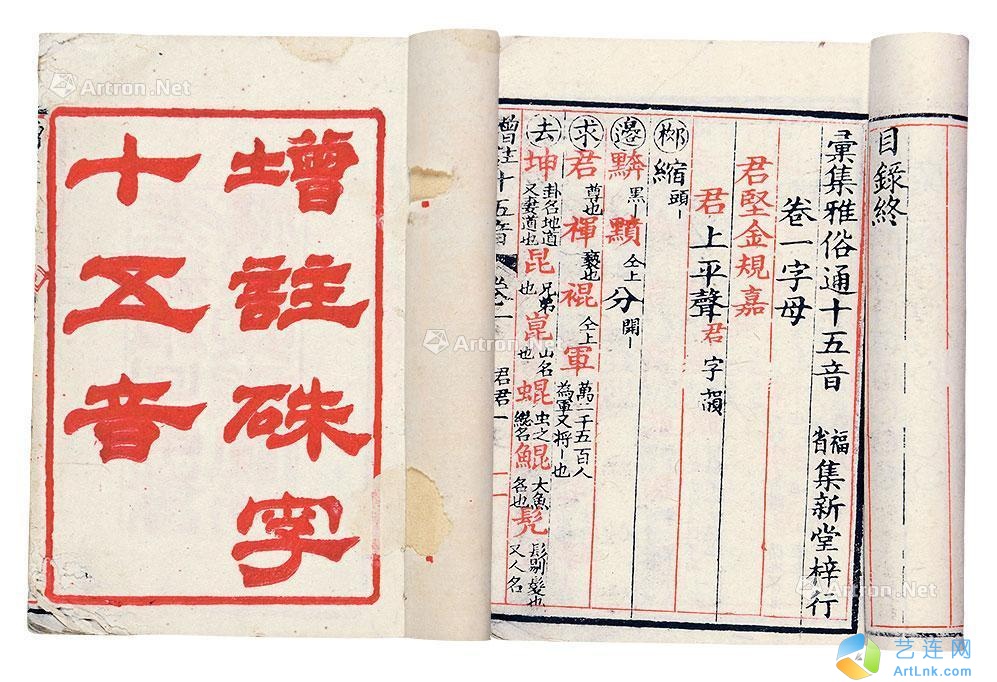 增註硃字
十五音
目錄終
彙集雅俗通十五音 福省集新堂梓行
卷一字母
君堅金規嘉
君上平聲君字韻
柳 縮 頭-
邊 黺 黑- 黂 仝上 分 開-
求 君 尊也 褌 褻也 裩 仝上 軍 萬二千五百人為軍又將-也
去 坤 卦名地道又妻道也 昆 兄弟也 崑 山名也 蜫 虫之總名 鯤 大魚名也 髡 髟剔髮也又人名
增註十五音 卷一 君君一
Artron.Net
Artron.Net
Artron.Net
Artron.Net
Artron.Net
艺连网
ArtLnk.com